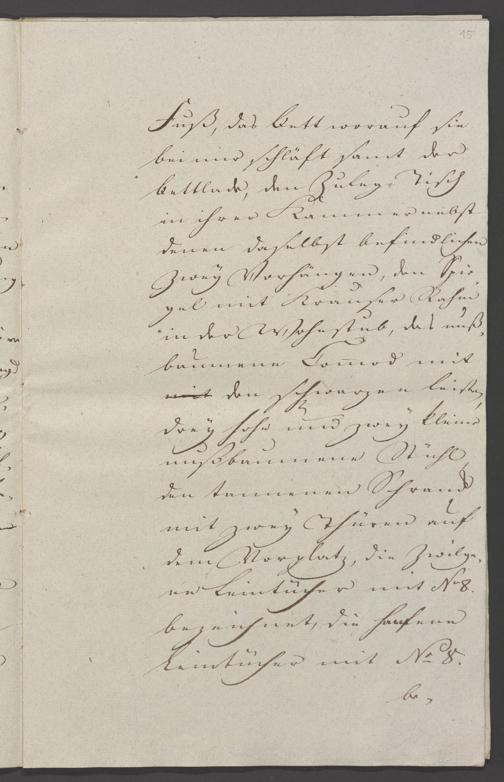 15
Fuß, das Bett worauf sie
bei mir schläft samt der
bettlade, den Zuleg, Tisch
in ihrer Kammer nebst
denen daselbst befindlichen
zwey Vorhängen, den Spie,
gel mit Krauser Rahm
in der Wohnstub, das nuß,
baumene Comod mit
mit den schwarzen leisten,
drey hohe und zwey kleine
nußbaumene Stühl,
den tannenen Schrank
mit zwey Thüren auf
dem Vorplatz, die Zwilge,
ne Leintücher mit No 8.
bezeichnet, die hanfene
Leintücher mit No 8.
be,